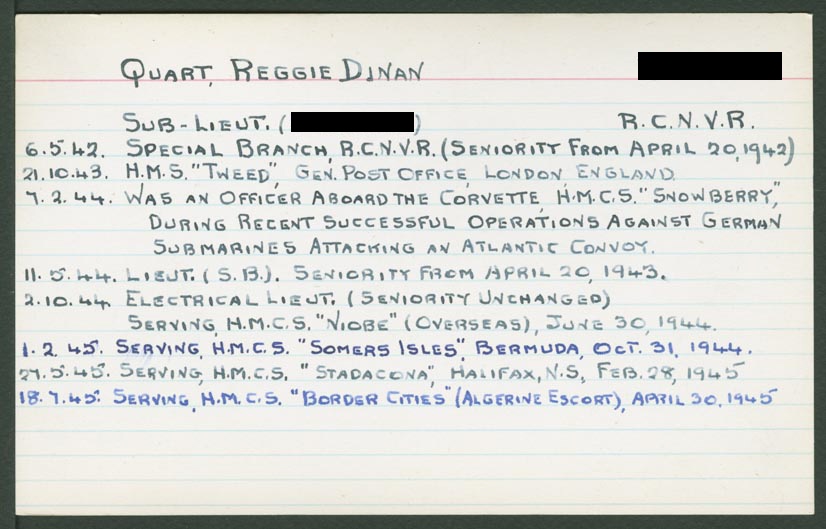 QUART, REGGIE DINAN
SUB-LIEUT. ( ) R.C.N.V.R.
6.5.42. SPECIAL BRANCH, R.C.N.V.R. (SENIORITY FROM APRIL 20, 1942)
21.10.43. H.M.S. "TWEED", GEN. POST OFFICE, LONDON ENGLAND.
7.2.44. WAS AN OFFICER ABOARD THE CORVETTE, H.M.C.S. "SNOWBERRY",
DURING RECENT SUCCESSFUL OPERATIONS AGAINST GERMAN
SUBMARINES ATTACKING AN ATLANTIC CONVOY.
11.5.44. LIEUT. (S.B.). SENIORITY FROM APRIL 20, 1943.
2.10.44. ELECTRICAL LIEUT. (SENIORITY UNCHANGED)
SERVING, H.M.C.S. "NIOBE" (OVERSEAS), JUNE 30, 1944.
1.2.45. SERVING, H.M.C.S. "SOMERS ISLES", BERMUDA, OCT. 31, 1944.
27.5.45. SERVING, H.M.C.S. "STADACONA", HALIFAX, N.S, FEB. 28, 1945
18.7.45. SERVING, H.M.C.S. "BORDER CITIES" (ALGERINE ESCORT), APRIL 30, 1945